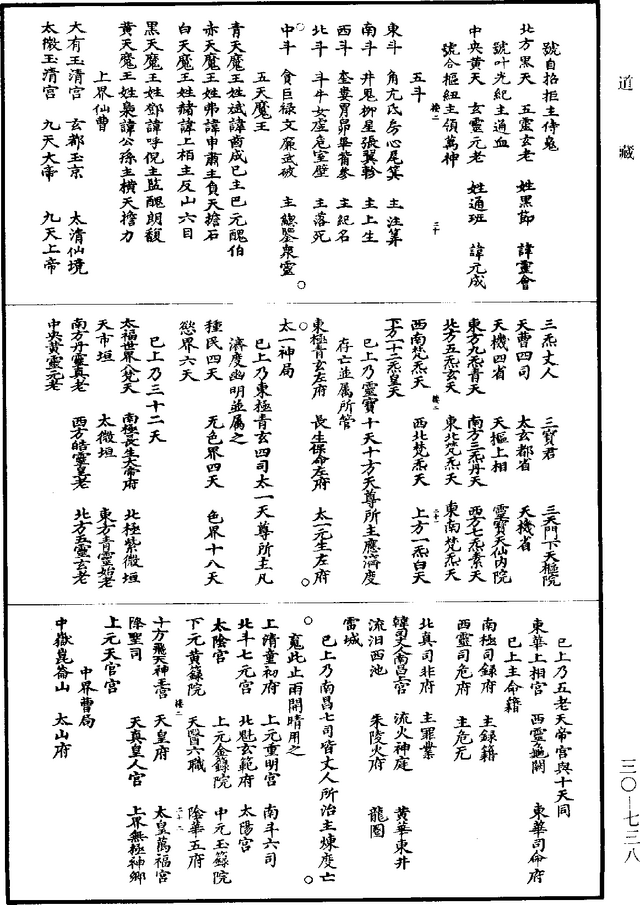 道藏
號自招拒主侍鬼
北方黑天　五靈玄老　姓黑節　諱靈會
號叶光紀主通血
中央黃天　玄靈元老　姓通班　諱元成
號合樞紐主領萬神
五斗
東斗　角亢氐房心尾箕　主注筭
南斗　井鬼柳星張翼軫　主上生
西斗　奎婁胃昴畢觜參　主記名
北斗　斗牛女虛危室壁　主落死
中斗　貪巨祿文廉武破　主總鑒衆靈
五天魔王
青天魔王姓斌諱酋成巳主巴元醜伯
赤天魔王姓弗諱申肅主負天擔石
白天魔王姓赭諱上栢主反山六目
黑天魔王姓鄧諱呼倪主監醜朗馥
黃天魔王姓裊諱公孫主橫天擔力
上界仙曹
大有玉清宮　玄都玉京　太清仙境
太微玉清宮　九天大帝　九天上帝
三炁丈人　三寶君　三天門下天樞院
天曹四司　太玄都省　天機省
天機四省　天樞上相　靈寶天仙內院
東方九炁青天　南方三炁丹天　西方七炁素天
北方五炁玄天　東北梵炁天　東南梵炁天
西南梵炁天　西北梵炁天　上方一炁白天
下方一十二炁皇天
已上乃靈寶十天十方天尊所主應濟度
存亡並屬所管
東極青玄左府　長生保命左府　太一元生左府
太一神局
已上乃東極青玄四司太一天尊所主凡
濟度幽明並屬之
種民四天　无色界四天　色界十八天
慾界六天
已上乃三十二天
太福世界八梵天　南極長生大帝府　北極紫微垣
天市垣　太微垣　東方青靈始老
南方丹靈真老　西方皓靈皇老　北方五靈玄老
中央黃靈元老
已上乃五老天帝宮與十天同
東華上相宮　西靈龜闕　東華司命府
已上主命籍
南極司錄府　主錄籍
西靈司危府　主危厄
北真司非府　主罪業
韓司丈人南昌宮　流火神庭　黃華東井
流汨西池　朱陵火府　龍圖
雷城
已上乃南昌七司皆丈人所治主煉度亡
䰟此止雨開晴用之
上清童初府　上元重明宮　南斗六司
北斗七元宮　北魁玄範府　太陽宮
太陰宮　上元金籙院　中元玉籙院
下元黃籙院　天醫六職　陰華五府
十方飛天神王宮　天皇府　太皇萬福宮
降聖司　天真皇人宮　上界無極神鄉
上元天官宮
中界曹局
中嶽崑崙山　太山府
三〇—七三八